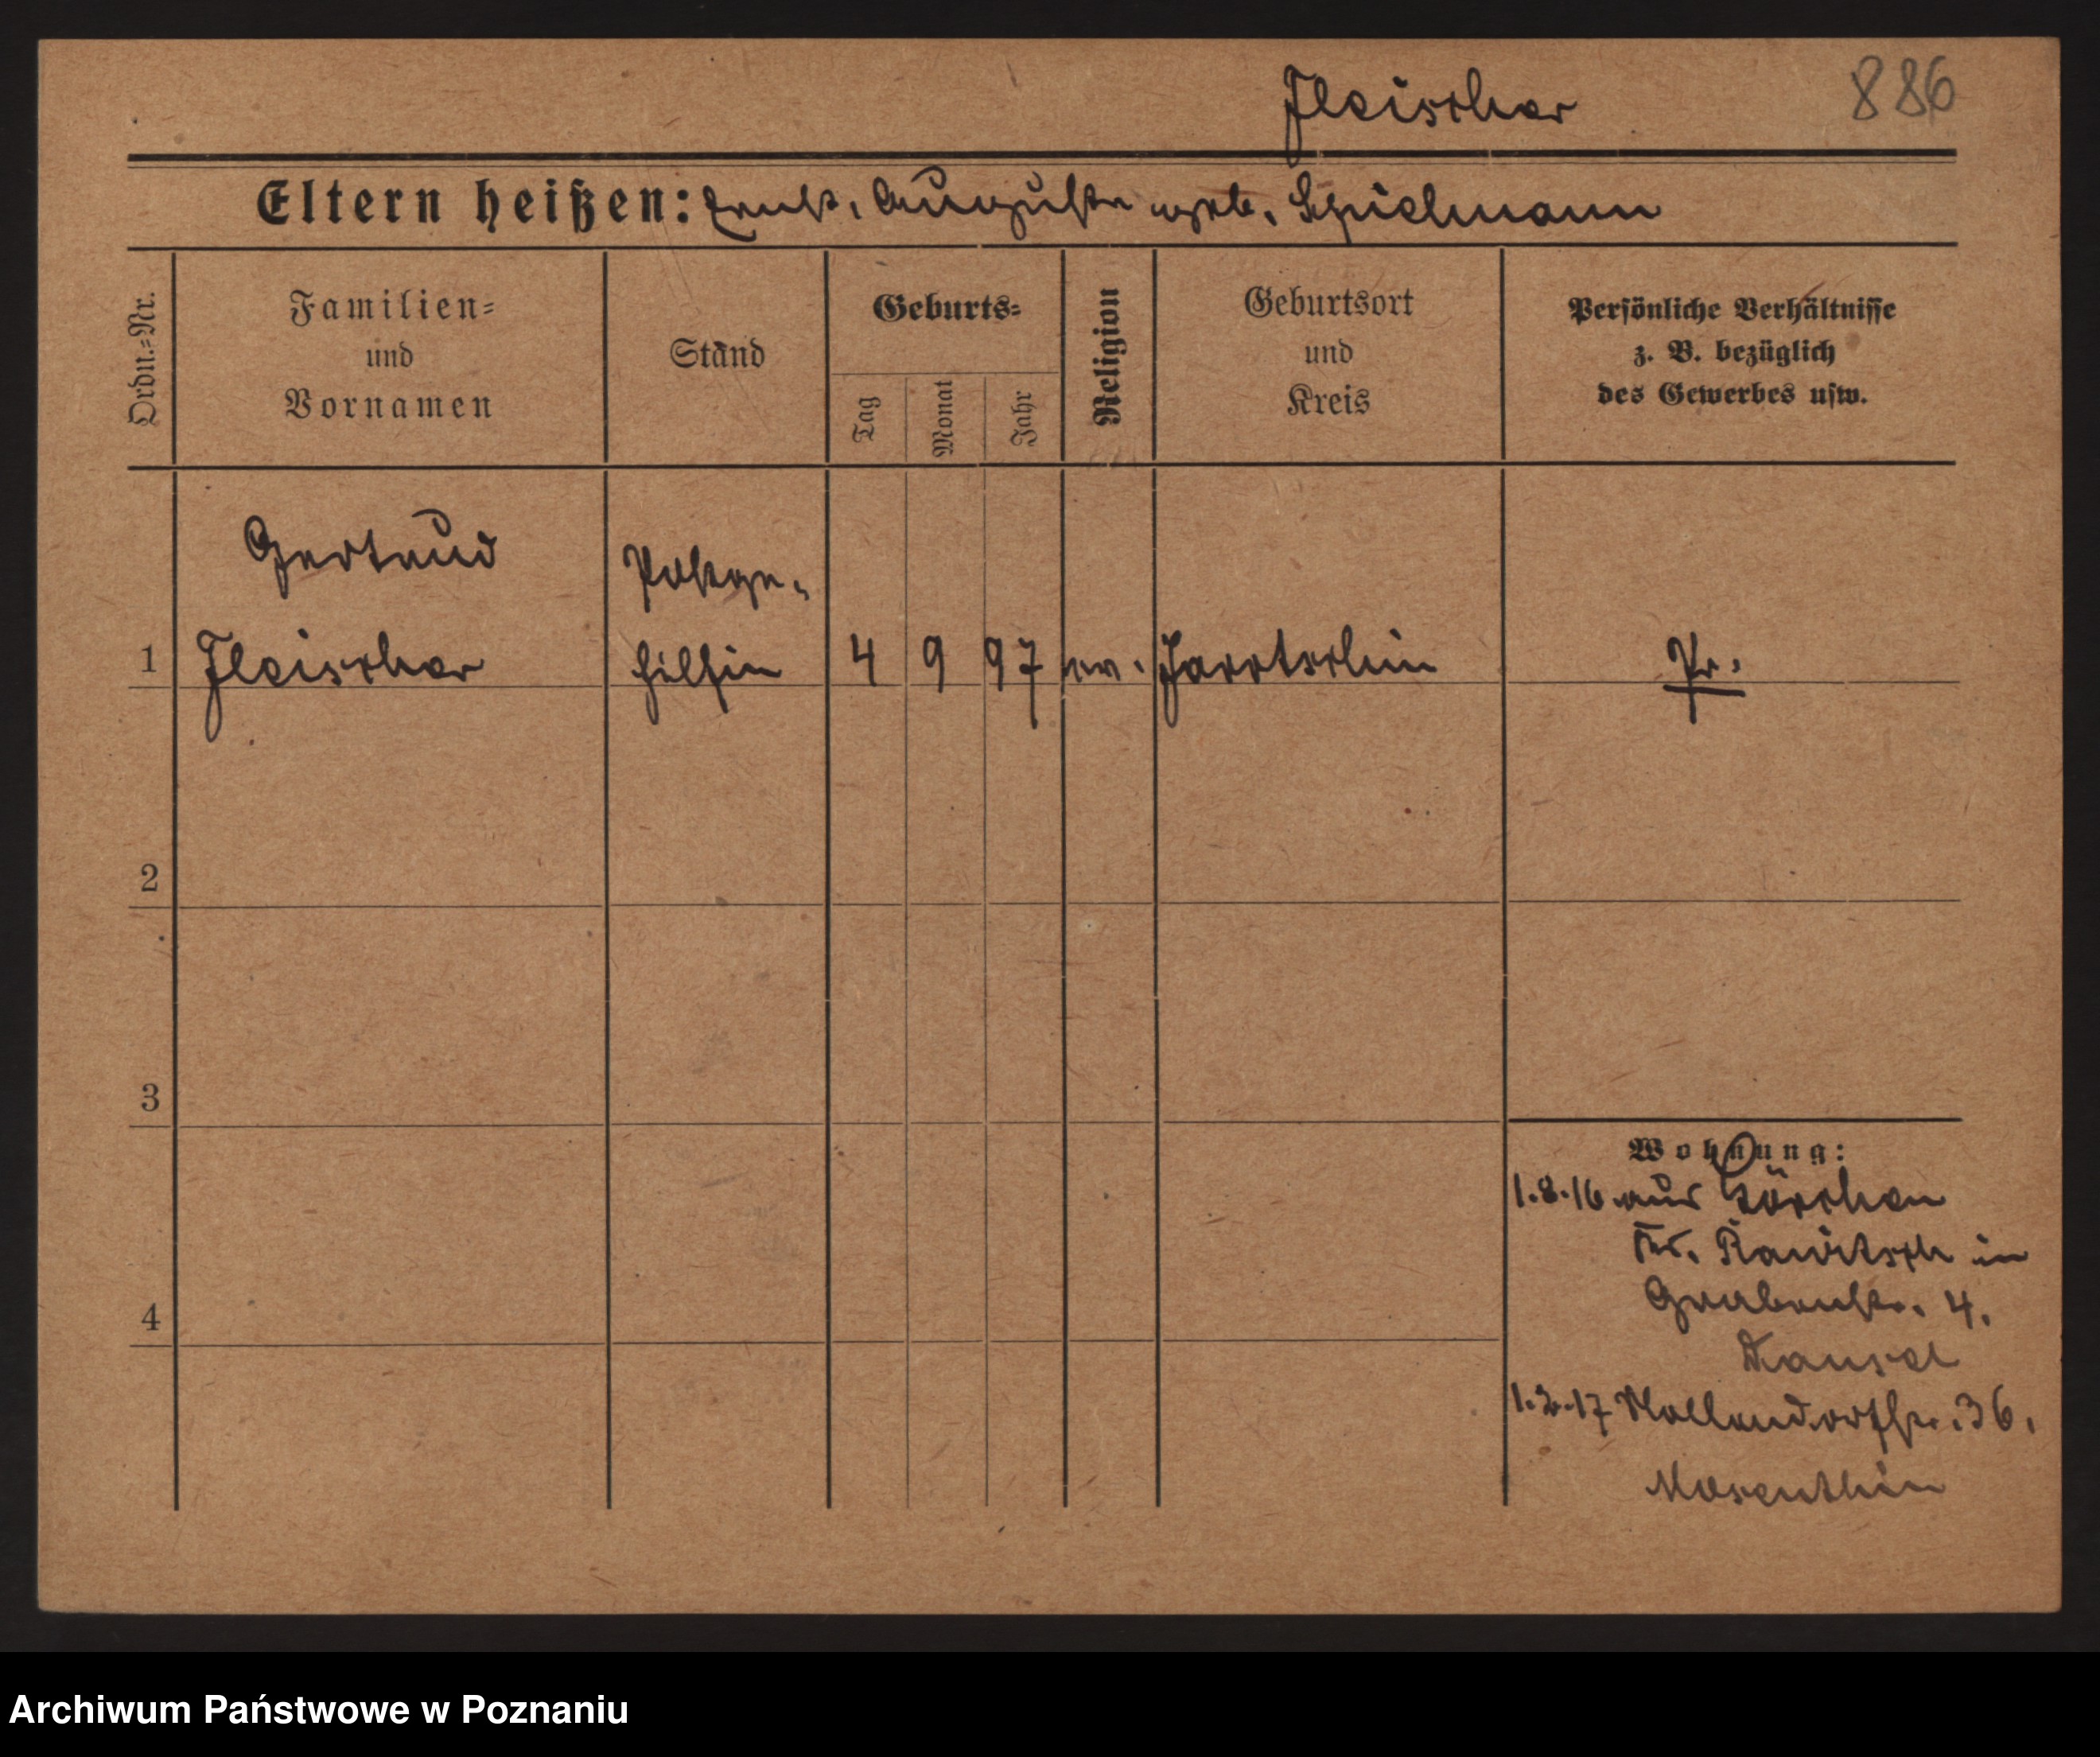 Fleischer
886
Eltern heißen: Ernst, Auguste geb. Spielmann
Ordn.=Nr.
Familien=
und
Vornamen
Stand
Geburts=
Tag
Monat
Jahr
Religion
Geburtsort
und
Kreis
Persönliche Verhältnisse
z. B. bezüglich
des Gewerbes usw.
Gertrud
Fleischer
Postge-
hilfin
1
4
9
97
ev.
Jarotschin
Pr.
2
3
4
Wohnung:
1.8.16 aus Görchen
Kr. Rawitsch in
Grabenstr. 4.
1.2.17 Wallendorffstr. 36.
Mosenthin
Archiwum Państwowe w Poznaniu